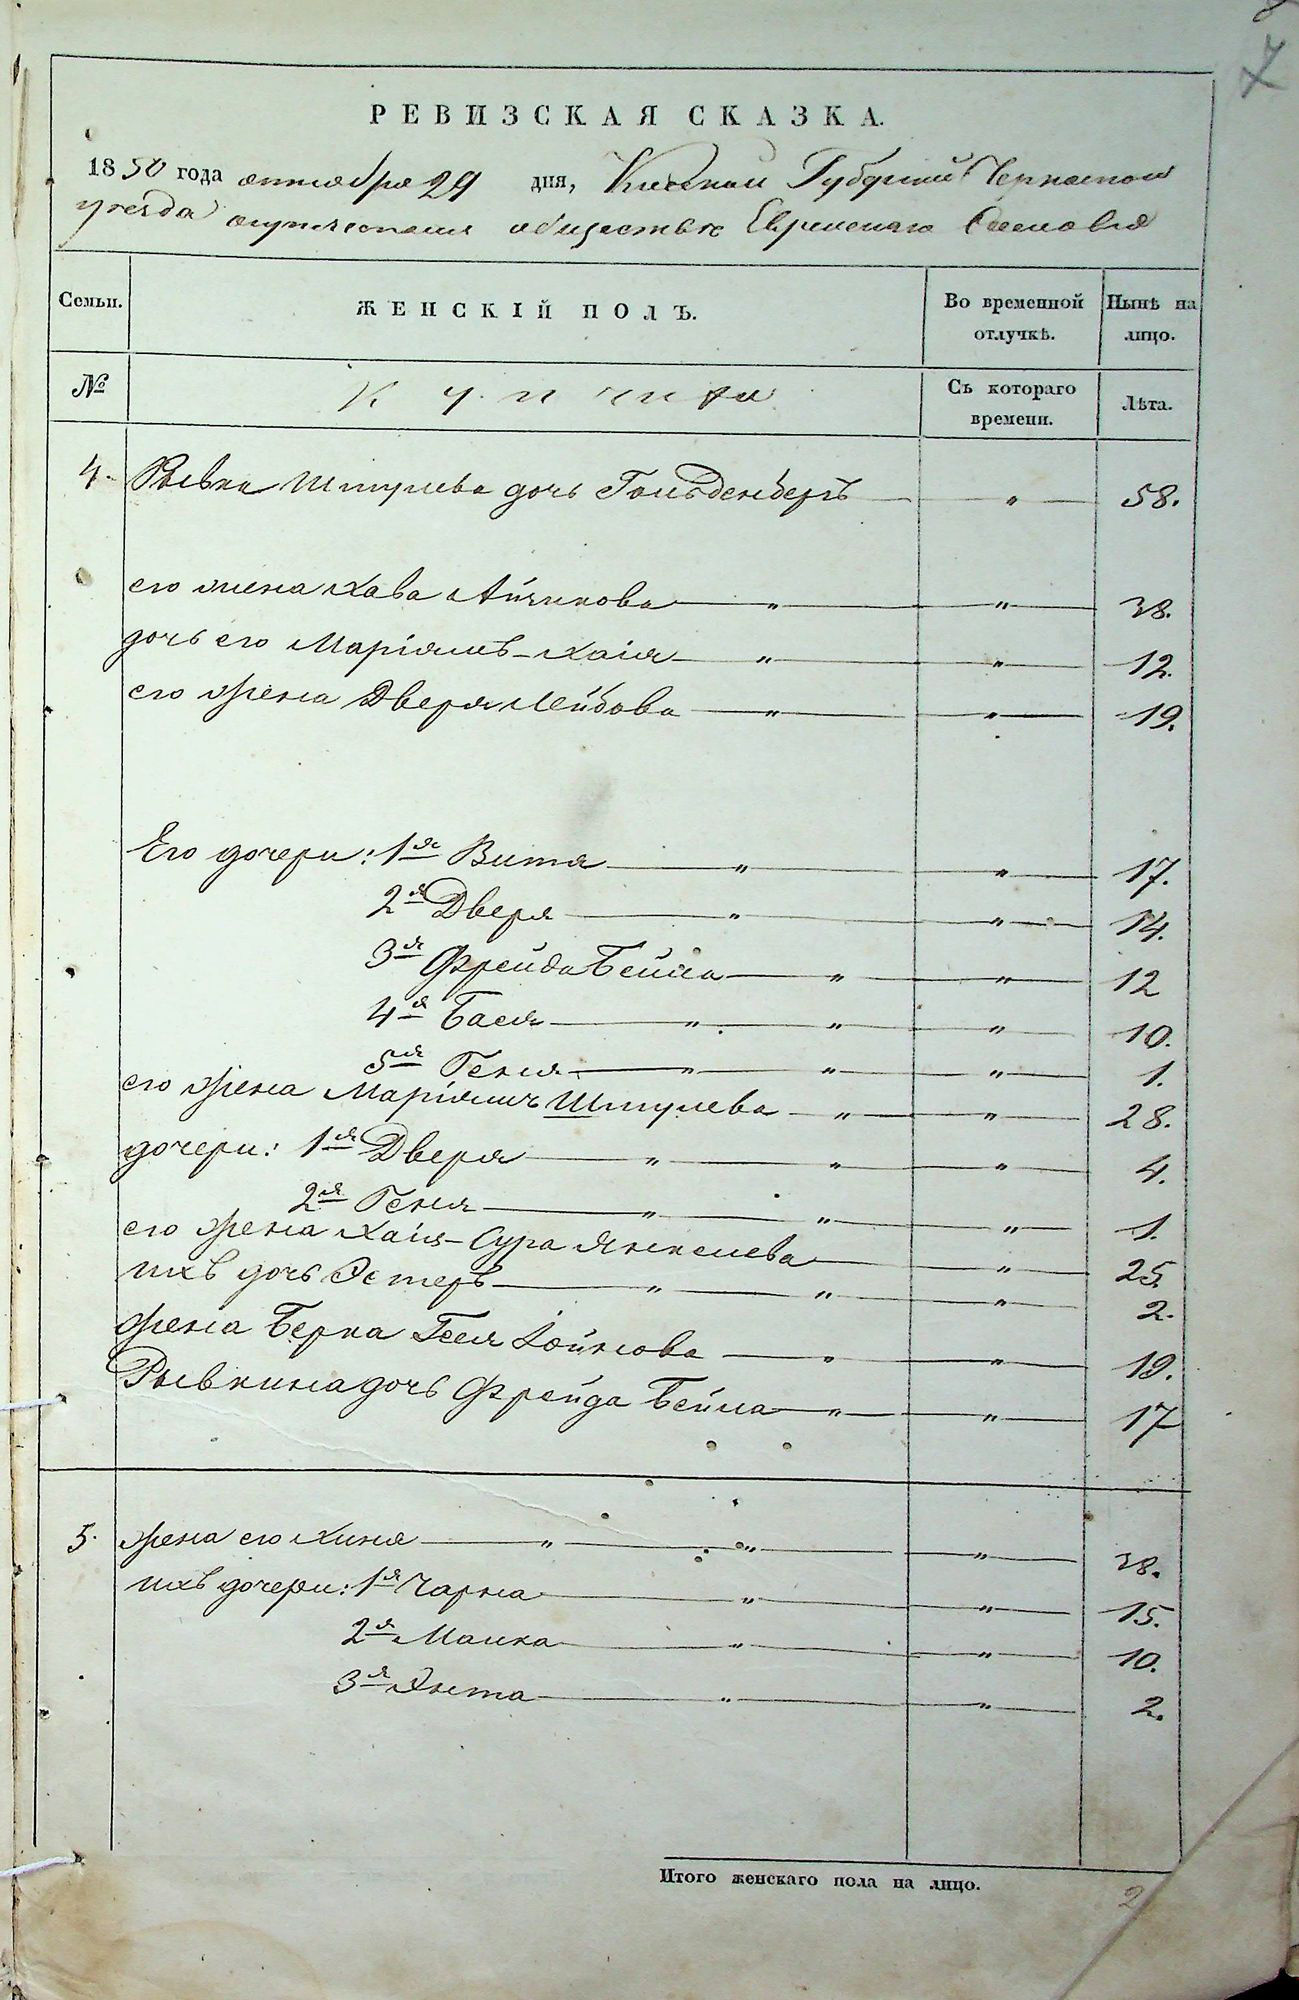 7
РЕВИЗСКАЯ СКАЗКА.
1850 года октября 29 дня, Кіевской Губерніи Черкаскаго
уезда купеческаго общества Еврейскаго Сословія
Семьи. ЖЕНСКІЙ ПОЛЪ. Во временной отлучкѣ. Нынѣ на лицо.
№ Купчихи Съ котораго времени. Лѣта.
4. Рывка Шмулева дочь Гольденбергъ — " — 58.
его жена Хава Айзикова — " — " — 38.
дочь его Маріямъ-Хаія — " — " — 12.
его жена Двера Лейбова — " — " — 19.
Его дочери: 1я Витя — " — " — 17.
2я Двера — " — " — 14.
3я Фрейда Бейла — " — " — 12
4я Бася — " — " — " — 10.
5я Геня — " — " — " — 1.
его жена Маріямъ Шмулева — " — " — 28.
дочери: 1я Двера — " — " — " — 4.
2я Геня — " — " — " — 1.
его жена Хаія-Сура Янкелева — " — 25.
ихъ дочь Эстеръ — " — " — " — 2.
жена Берка Іойнова — " — " — 19.
Рывкина дочь Фрейда Бейла — " — " — 17
5. жена его Хиня — " — " — " — 38.
ихъ дочери: 1я Чарна — " — " — 15.
2я Малка — " — " — 10.
3я Энта — " — " — 2.
Итого женскаго пола на лицо.
2